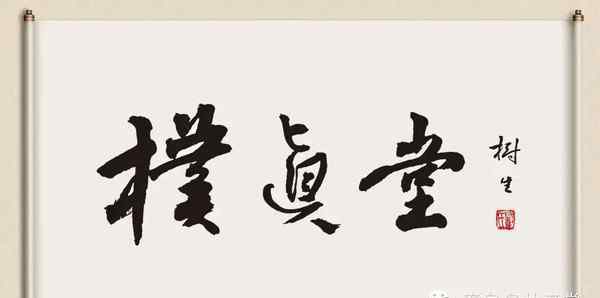 樸眞堂
樹生